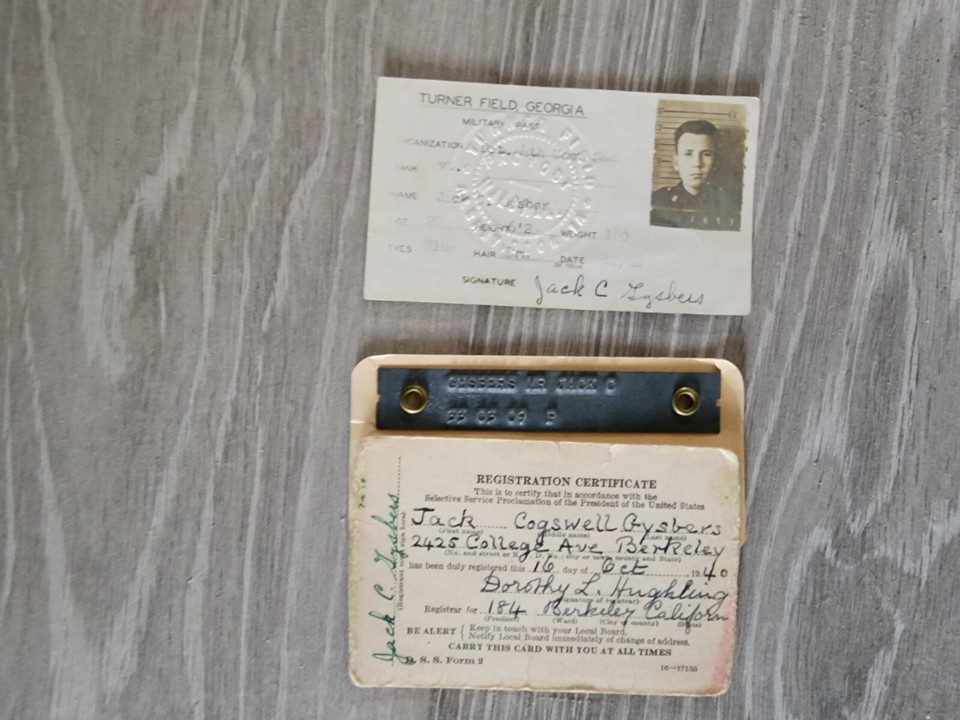 TURNER FIELD, GEORGIA
MILITARY PASS
NAME
HEIGHT 6'2 WEIGHT
EYES HAIR DATE
SIGNATURE Jack C Gysbers
GYSBERS MR JACK C
53 03 09 P
REGISTRATION CERTIFICATE
This is to certify that in accordance with the
Selective Service Proclamation of the President of the United States
Jack Cogswell Gysbers
(First name) (Middle name) (Last name)
2425 College Ave Berkeley
has been duly registered this 16 day of Oct 1940
Dorothy L. Hughling
(Signature of registrar)
Registrar for 184 Berkeley Californ
(Precinct) (Ward) (City or county) (State)
BE ALERT { Keep in touch with your Local Board.
Notify Local Board immediately of change of address.
CARRY THIS CARD WITH YOU AT ALL TIMES
D. S. S. Form 2 16—17105
Jack C. Gysbers